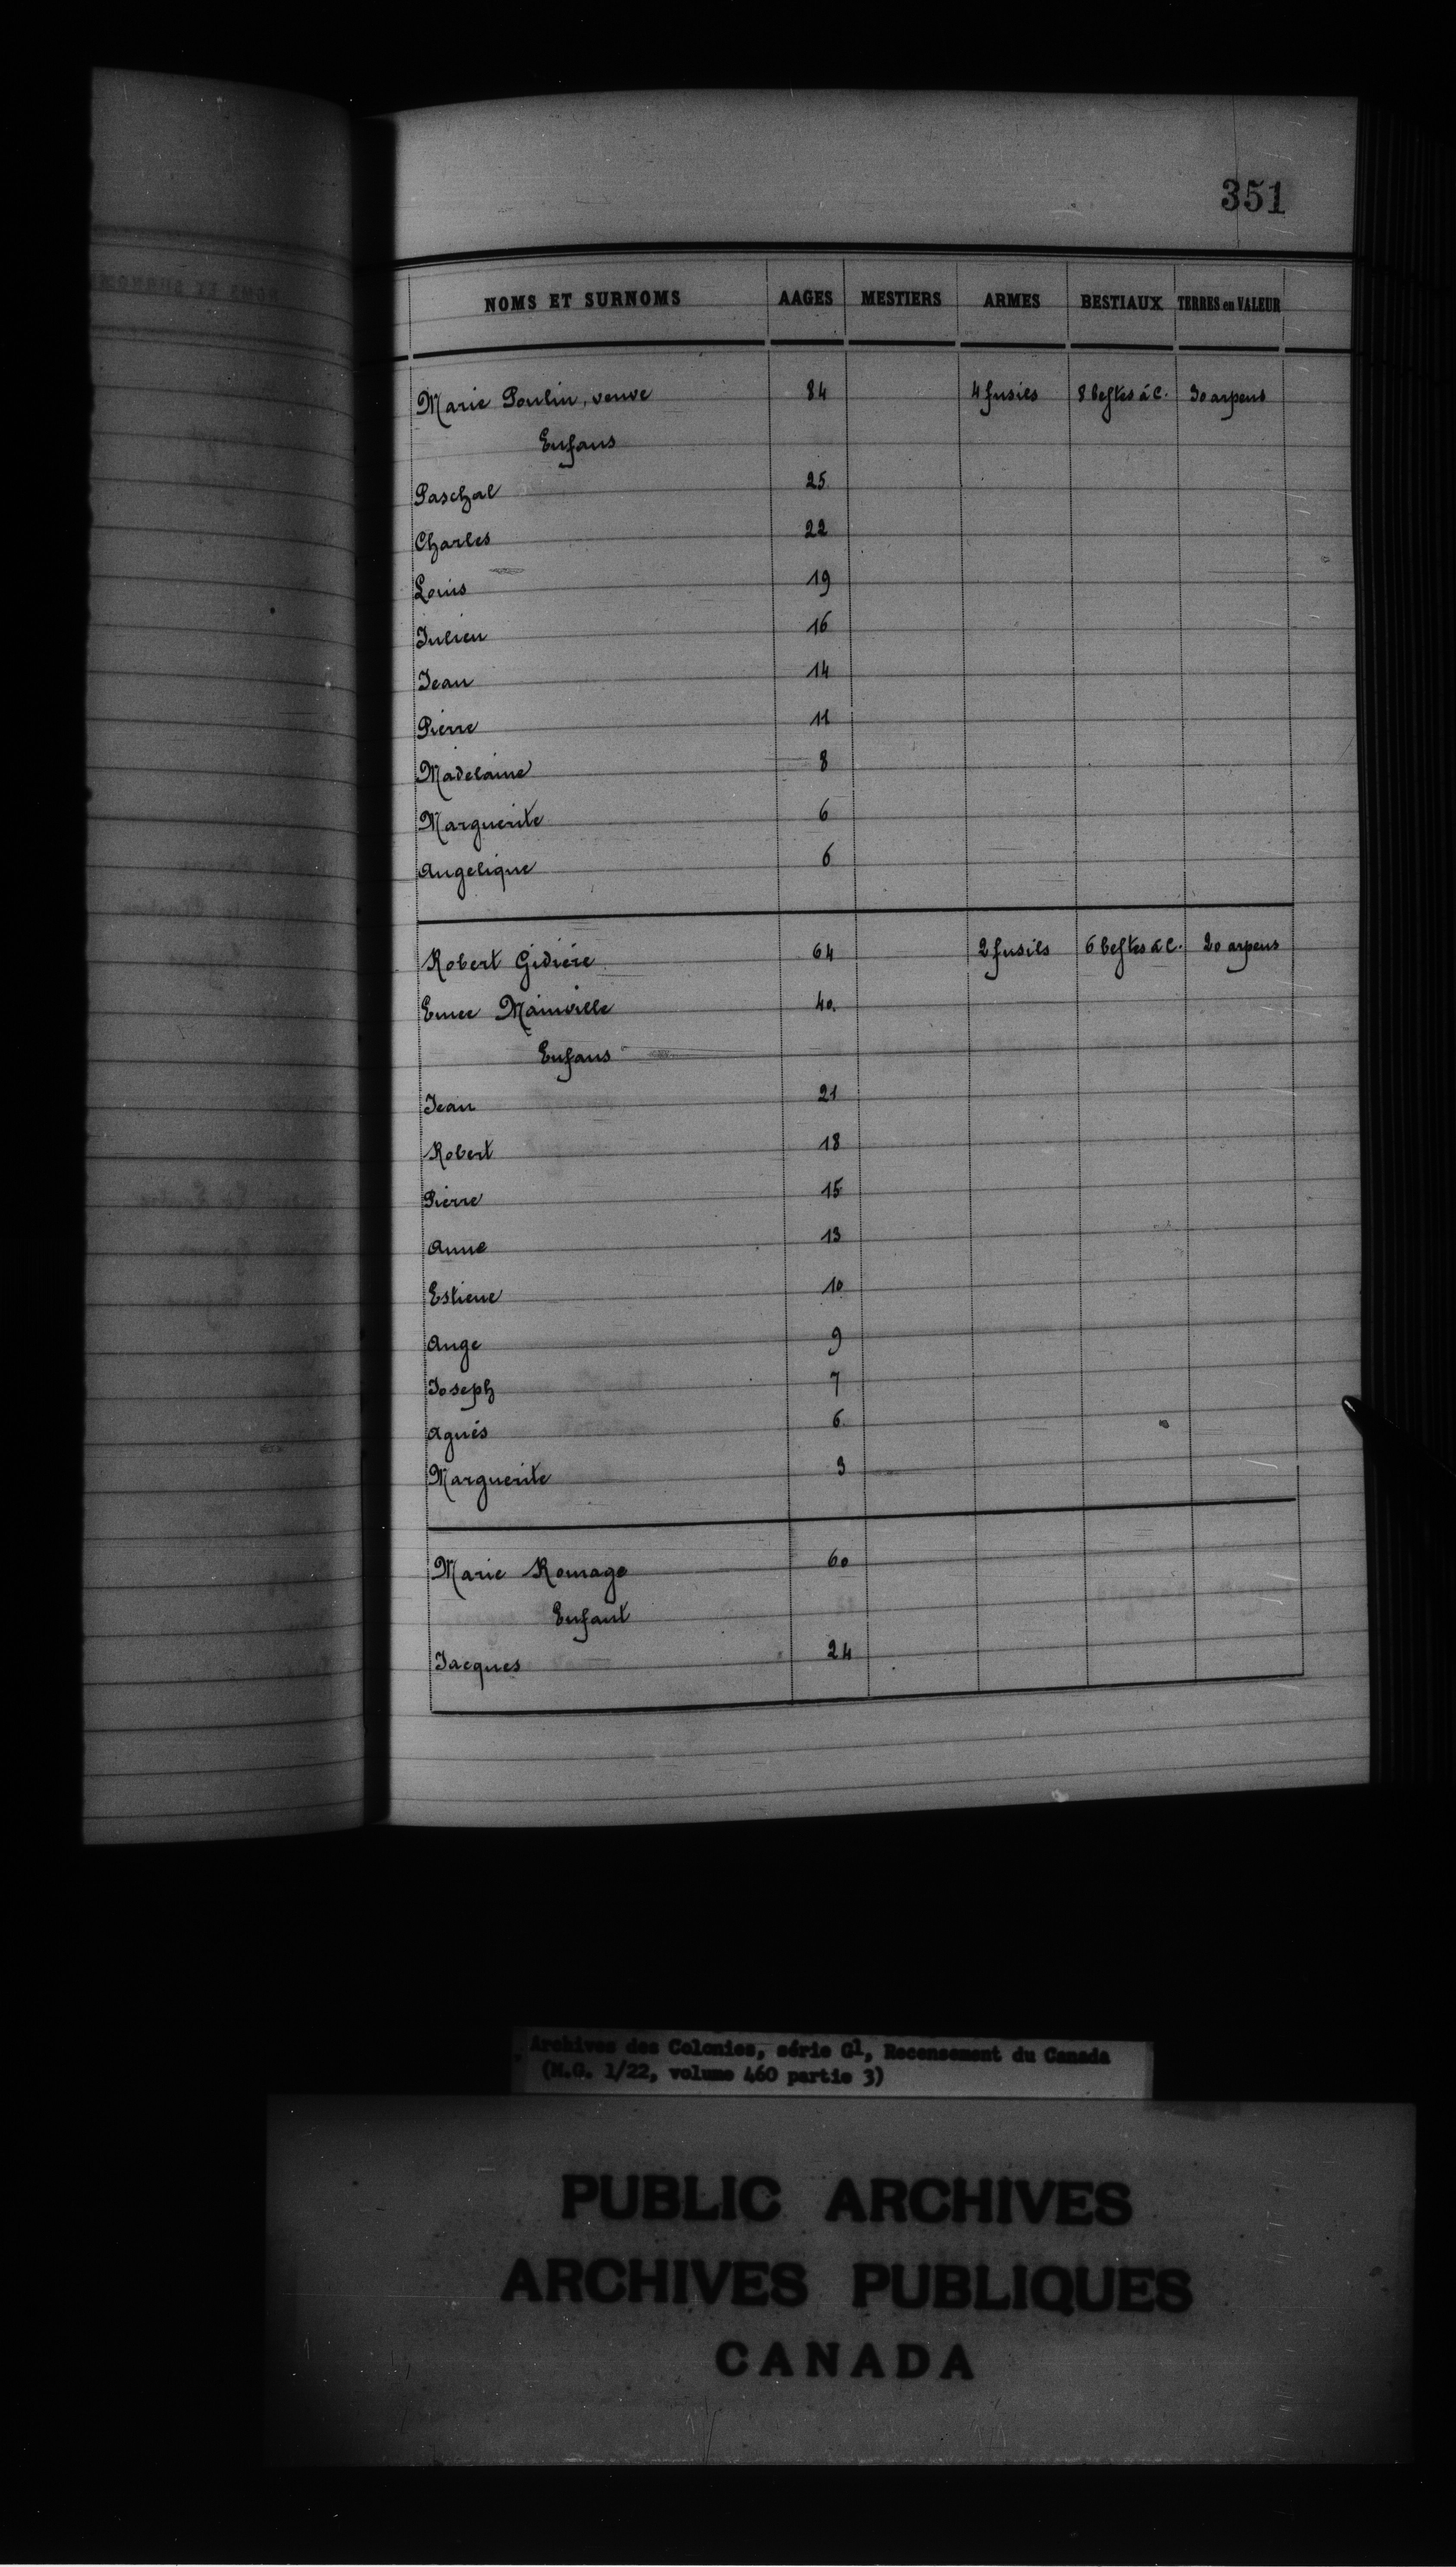 351
NOMS ET SURNOMS AAGES MESTIERS ARMES BESTIAUX TERRES en VALEUR
Marie Poulin, veuve 84 4 fusils 8 bestes à C. 30 arpens
Enfans
Paschal 25
Charles 22
Louis 19
Julien 16
Jean 14
Pierre 11
Madelaine 8
Marguerite 6
Angelique 6
Robert Gidiére 64 2 fusils 6 bestes à C. 20 arpens
Emée Mainville 40.
Enfans
Jean 21
Robert 18
Pierre 15
Anne 13
Estiene 10
Ange 9
Joseph 7
Agnés 6
Marguerite 3
Marie Romage 60
Enfant
Jacques 24
Archives des Colonies, série G1, Recensement du Canada
(M.G. 1/22, volume 460 partie 3)
PUBLIC ARCHIVES
ARCHIVES PUBLIQUES
CANADA